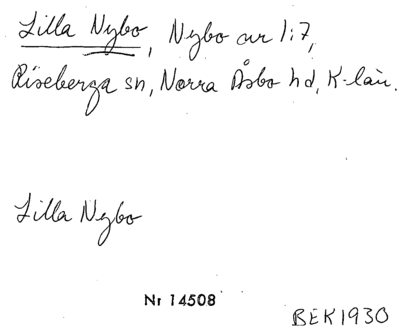 Lilla Nybo, Nybo av 1:7,
Riseberga sn, Norra Åsbo hd, K-län.
Lilla Nybo
Nr 14508
BEK1930